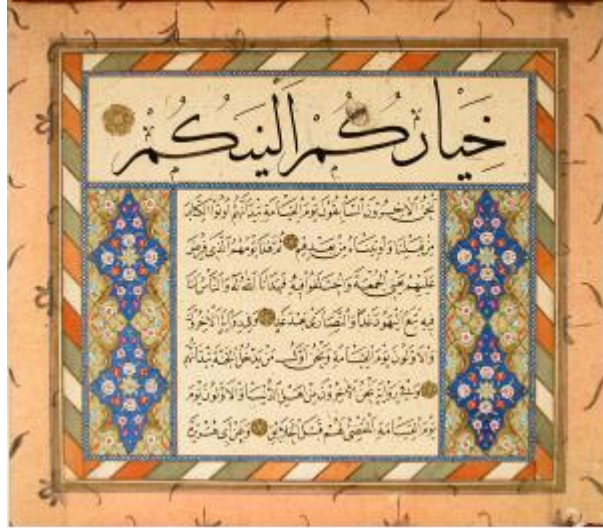 خَيَارُكُمْ أَلْيَنُكُمْ
نحن الآخرون السابقون يوم القيامة بيد أنهم أوتوا الكتاب
من قبلنا وأوتيناه من بعدهم ثم هذا يومهم الذي فرض
عليهم يعني الجمعة فاختلفوا فيه فهدانا الله له والناس لنا
فيه تبع اليهود غدا والنصارى بعد غد وفي رواية الآخرون
والأولون يوم القيامة ونحن أول من يدخل الجنة بيد أنهم
وفي رواية نحن الآخرون من أهل الدنيا والأولون يوم
يوم القيامة المقضي لهم قبل الخلائق وعن أبي هريرة